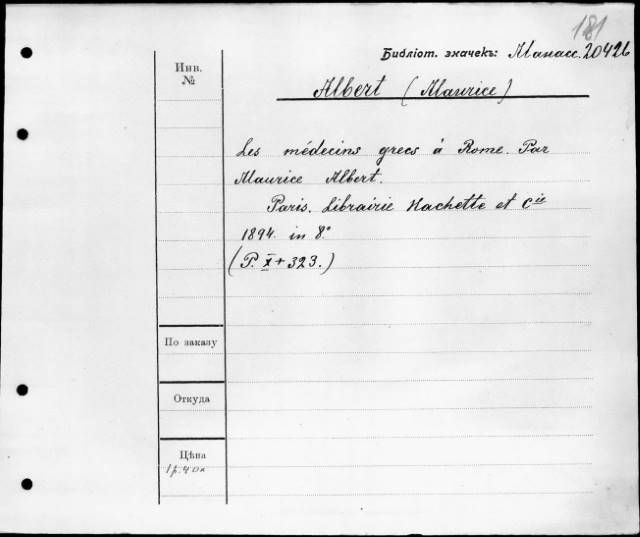 181
Библіот. значекъ: Манасс. 20426
Инв. №
Albert (Maurice)
Les médecins grecs à Rome. Par
Maurice Albert.
Paris. Librairie Hachette et Cie
1894. in 8°
(P. X + 323.)
По заказу
Откуда
Цѣна
1 р. 40 к